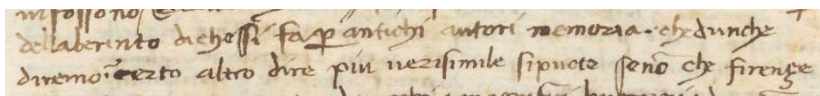 del laberinto di che ssi fa ꝑ antichi autori memoria. che dunche
diremo? certo altro dire piu uerisimile si puote seno che firenze